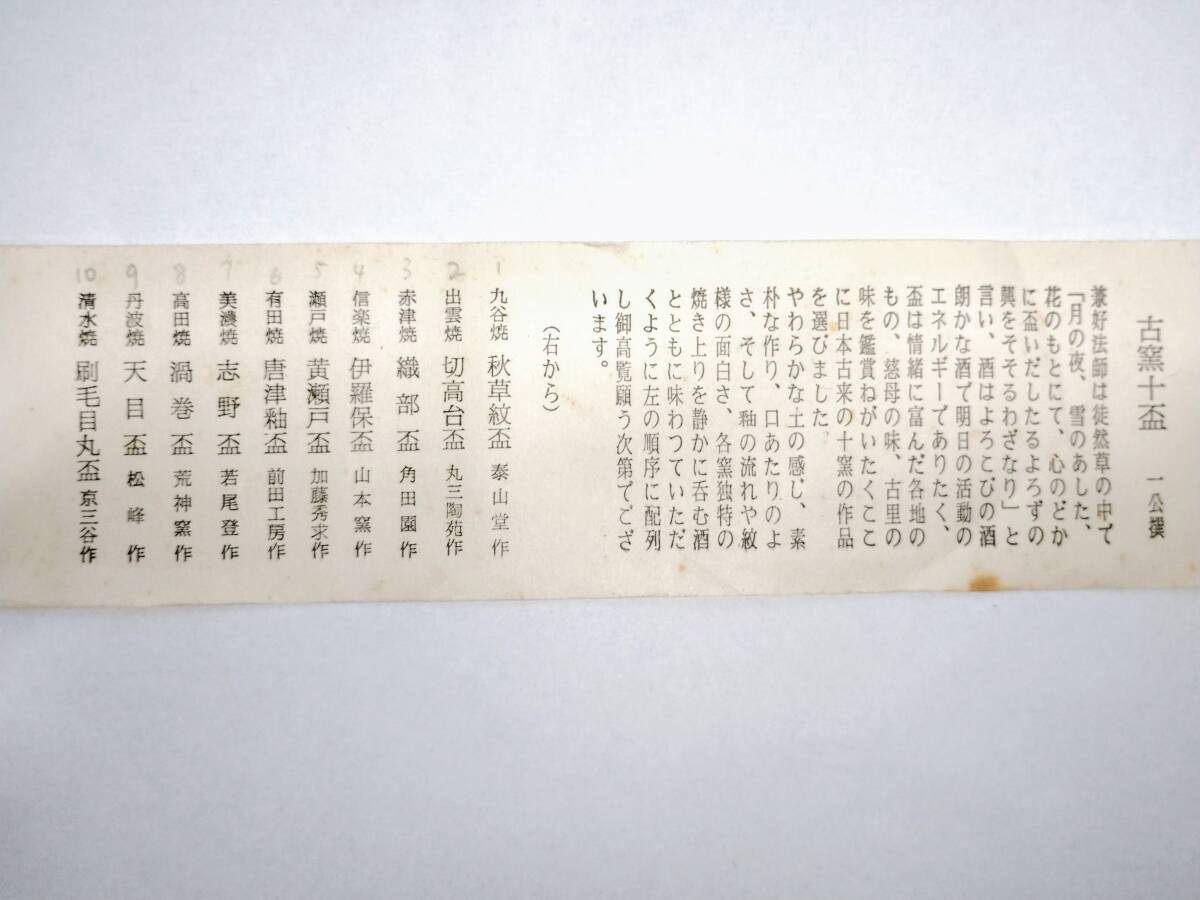 古窯十盃　一公撰
兼好法師は徒然草の中で
「月の夜、雪のあした、
花のもとにて、心のどか
に盃いだしたるよろずの
興をそそるわざなり」と
言い、酒はよろこびの酒
朗かな酒で明日の活動の
エネルギーでありたく、
盃は情緒に富んだ各地の
もの、慈母の味、古里の
味を鑑賞ねがいたくここ
に日本古来の十窯の作品
を選びました。
やわらかな土の感じ、素
朴な作り、口あたりのよ
さ、そして釉の流れや紋
様の面白さ、各窯独特の
焼き上りを静かに呑む酒
とともに味わつていただ
くように左の順序に配列
し御高覧願う次第でござ
います。
（右から）
1 九谷焼 秋草紋盃 泰山堂作
2 出雲焼 切高台盃 丸三陶苑作
3 赤津焼 織部盃 角田園作
4 信楽焼 伊羅保盃 山本窯作
5 瀬戸焼 黄瀬戸盃 加藤秀求作
6 有田焼 唐津釉盃 前田工房作
7 美濃焼 志野盃 若尾登作
8 高田焼 渦巻盃 荒神窯作
9 丹波焼 天目盃 松峰作
10 清水焼 刷毛目丸盃 京三谷作